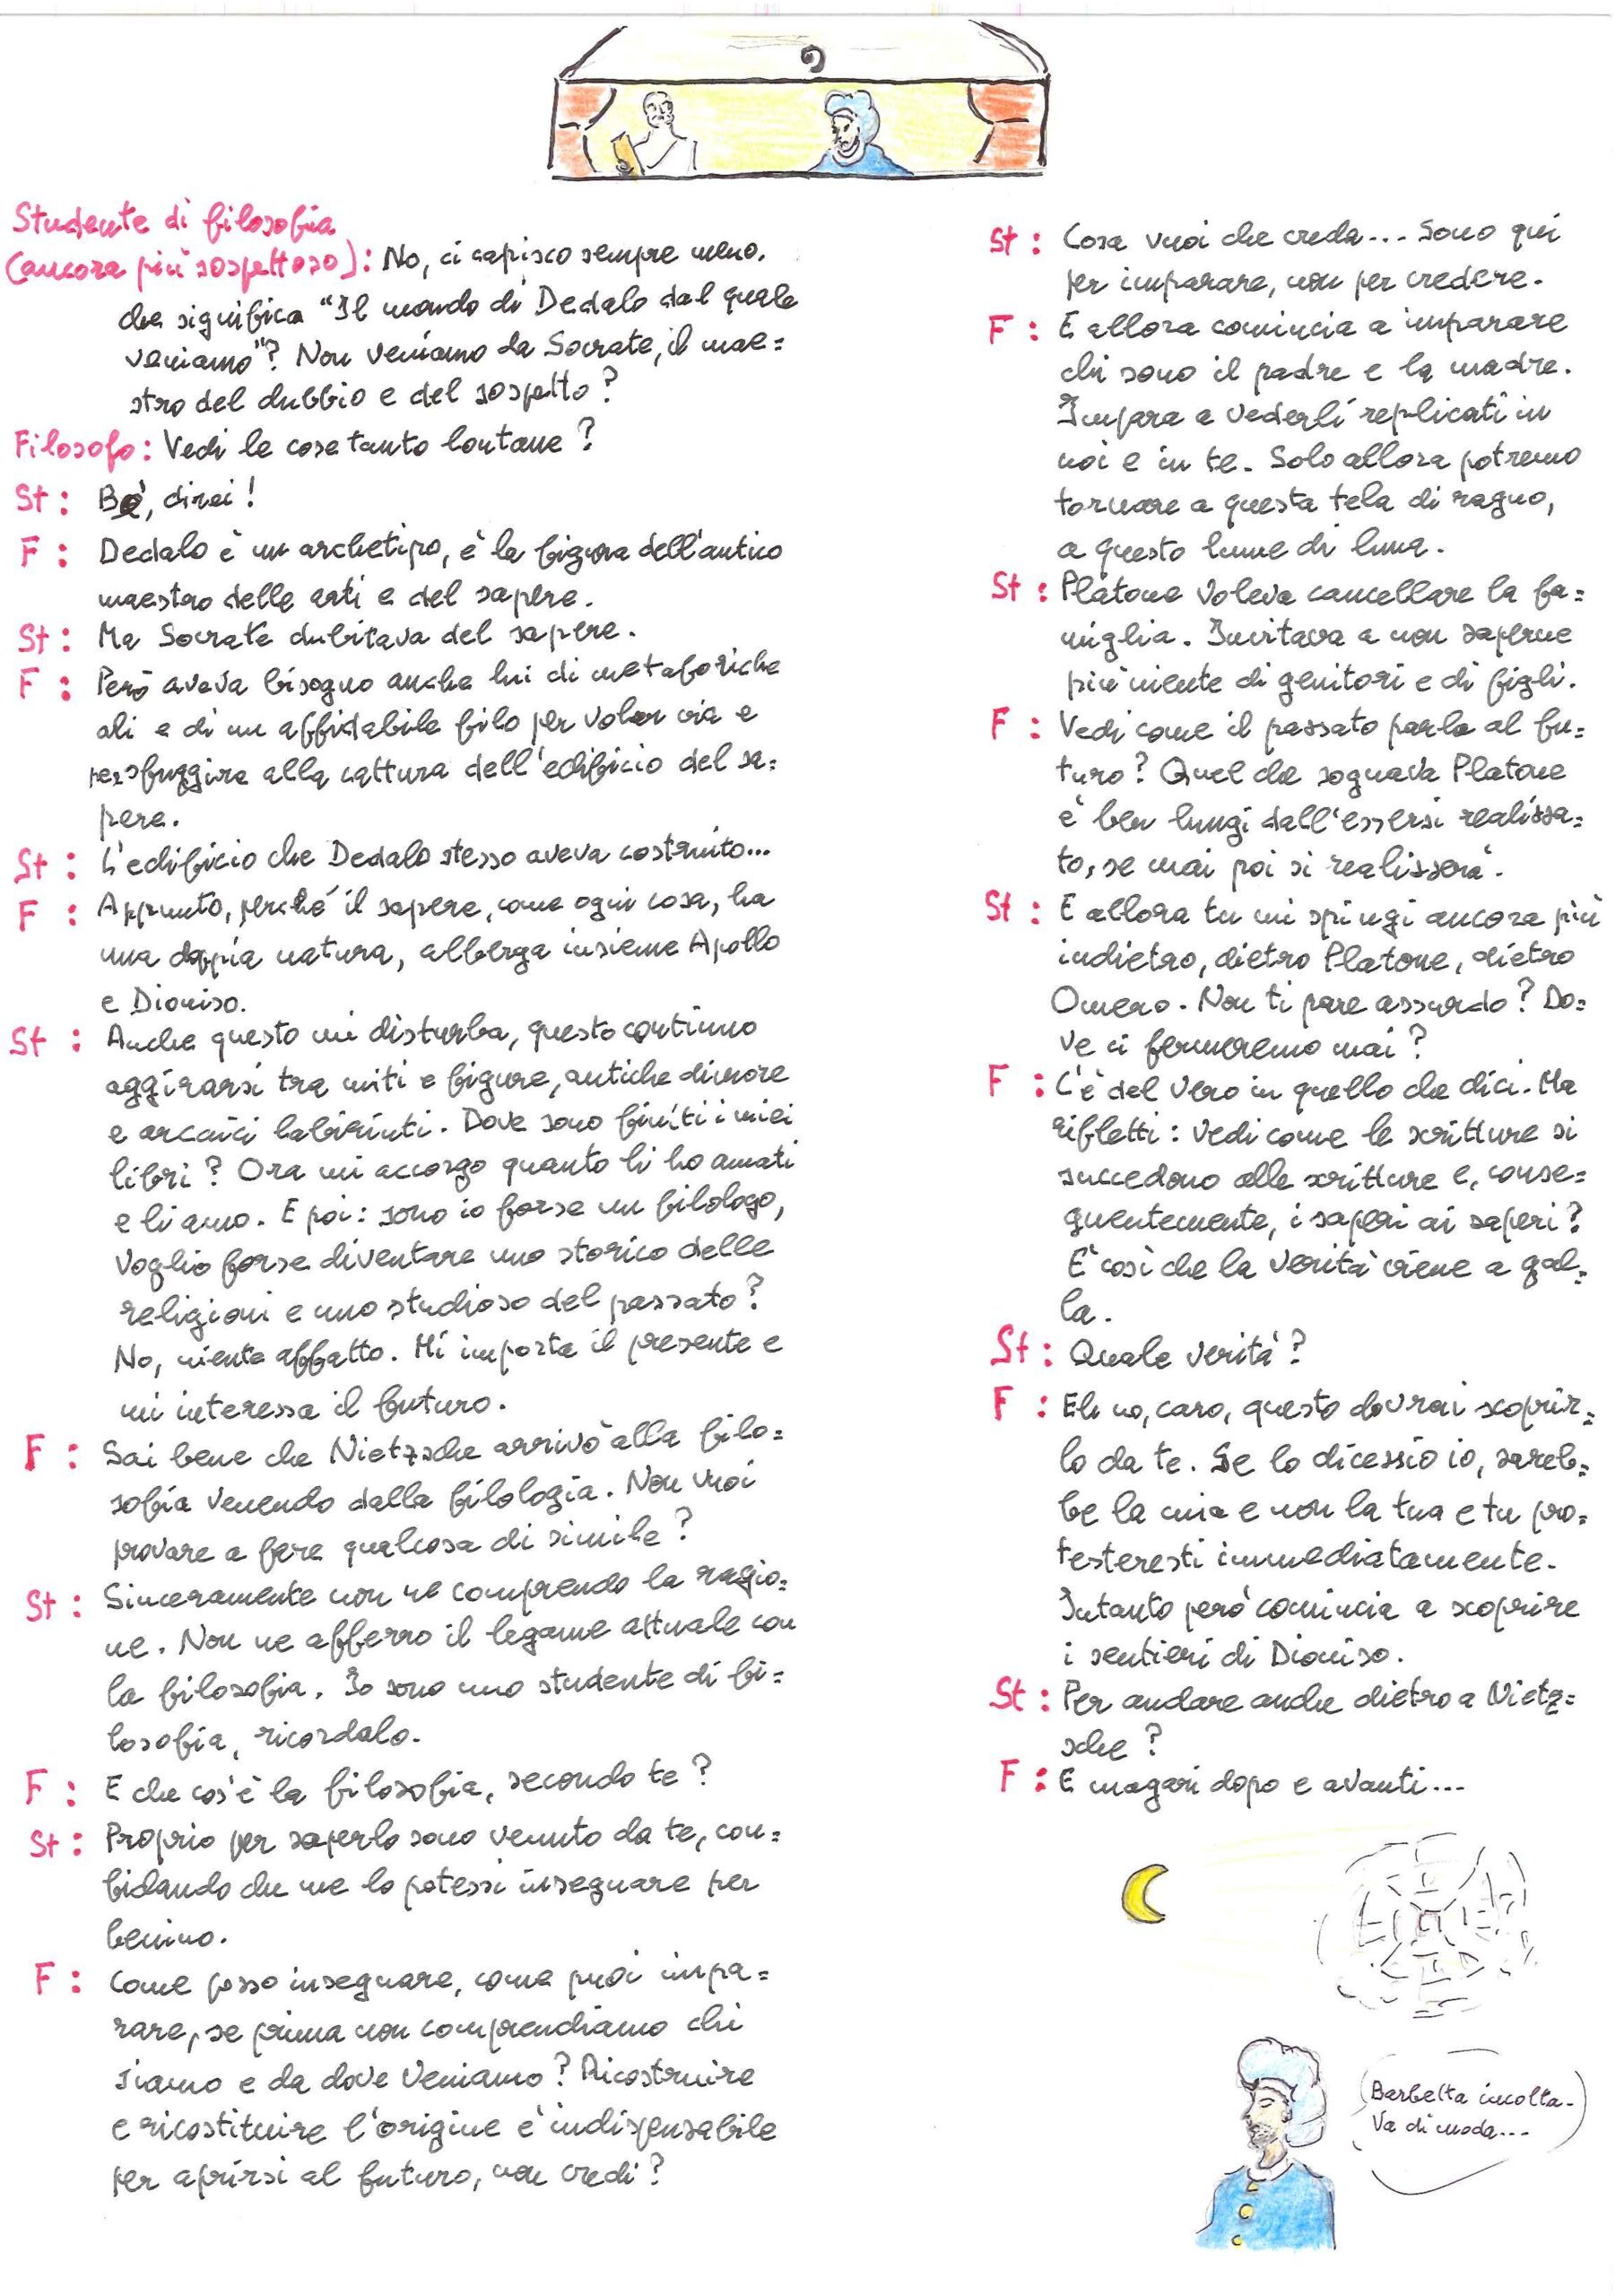 Studente di filosofia
(ancora più sospettoso): No, ci capisco sempre meno.
che significa "Il mondo di Dedalo dal quale
veniamo"? Non veniamo da Socrate, il mae=
stro del dubbio e del sospetto?
Filosofo: Vedi le cose tanto lontane?
St: Bè, direi!
F: Dedalo è un archetipo, è la figura dell'antico
maestro delle arti e del sapere.
St: Ma Socrate dubitava del sapere.
F: Però aveva bisogno anche lui di metaforiche
ali e di un affidabile filo per volar via e
per sfuggire alla cattura dell'edificio del sa=
pere.
St: L'edificio che Dedalo stesso aveva costruito...
F: Appunto, perché il sapere, come ogni cosa, ha
una doppia natura, alberga insieme Apollo
e Dioniso.
St: Anche questo mi disturba, questo continuo
aggirarsi tra miti e figure, antiche dimore
e arcaici labirinti. Dove sono finiti i miei
libri? Ora mi accorgo quanto li ho amati
e li amo. E poi: sono io forse un filologo,
voglio forse diventare uno storico delle
religioni e uno studioso del passato?
No, niente affatto. Mi importa il presente e
mi interessa il futuro.
F: Sai bene che Nietzsche arrivò alla filo=
sofia venendo dalla filologia. Non vuoi
provare a fare qualcosa di simile?
St: Sinceramente non ne comprendo la ragio=
ne. Non ne afferro il legame attuale con
la filosofia. Io sono uno studente di fi=
losofia, ricordalo.
F: E che cos'è la filosofia, secondo te?
St: Proprio per saperlo sono venuto da te, con=
fidando che me lo potessi insegnare per
benino.
F: Come posso insegnare, come puoi impa=
rare, se prima non comprendiamo chi
siamo e da dove veniamo? Ricostruire
e ricostituire l'origine è indispensabile
per aprirsi al futuro, non credi?
St: Cosa vuoi che creda... Sono qui
per imparare, non per credere.
F: E allora comincia a imparare
chi sono il padre e la madre.
Impara a vederli replicati in
noi e in te. Solo allora potremo
tornare a questa tela di ragno,
a questo lume di luna.
St: Platone voleva cancellare la fa=
miglia. Invitava a non saperne
più niente di genitori e di figli.
F: Vedi come il passato parla al fu=
turo? Quel che sognava Platone
è ben lungi dall'essersi realizza=
to, se mai poi si realizzerà.
St: E allora tu mi spingi ancora più
indietro, dietro Platone, dietro
Omero. Non ti pare assurdo? Do=
ve ci fermeremo mai?
F: C'è del vero in quello che dici. Ma
rifletti: vedi come le scritture si
succedono alle scritture e, conse=
guentemente, i saperi ai saperi?
E' così che la verità viene a gal=
la.
St: Quale verità?
F: Eh no, caro, questo dovrai scoprir=
lo da te. Se lo dicessio io, sareb=
be la mia e non la tua e tu pro=
testeresti immediatamente.
Intanto però comincia a scoprire
i sentieri di Dioniso.
St: Per andare anche dietro a Nietz=
sche?
F: E magari dopo e avanti...
Barbetta incolta.
Va di moda...